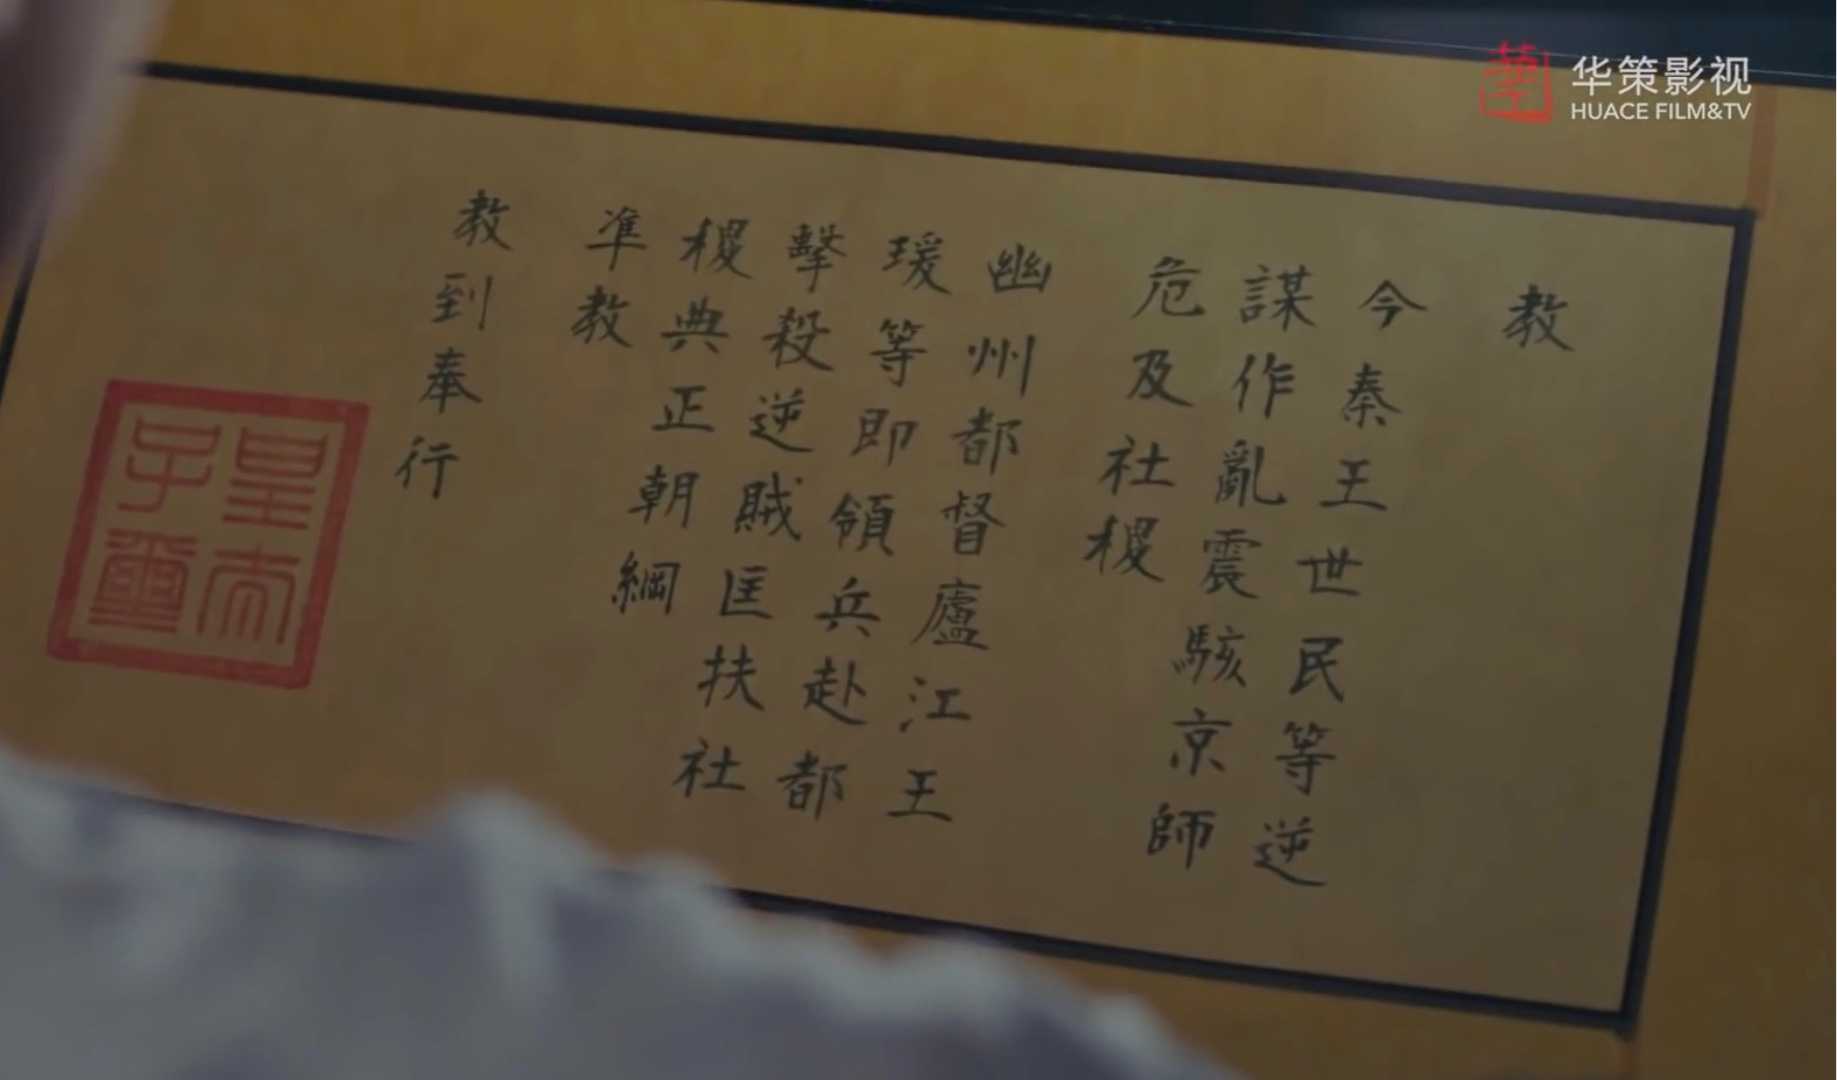 教
今秦王世民等逆
謀作亂震駭京師
危及社稷
幽州都督廬江王
瑗等即領兵赴都
擊殺逆賊匡扶社
稷典正朝綱
准教
教到奉行
皇太
子璽
华策影视
HUACE FILM&TV